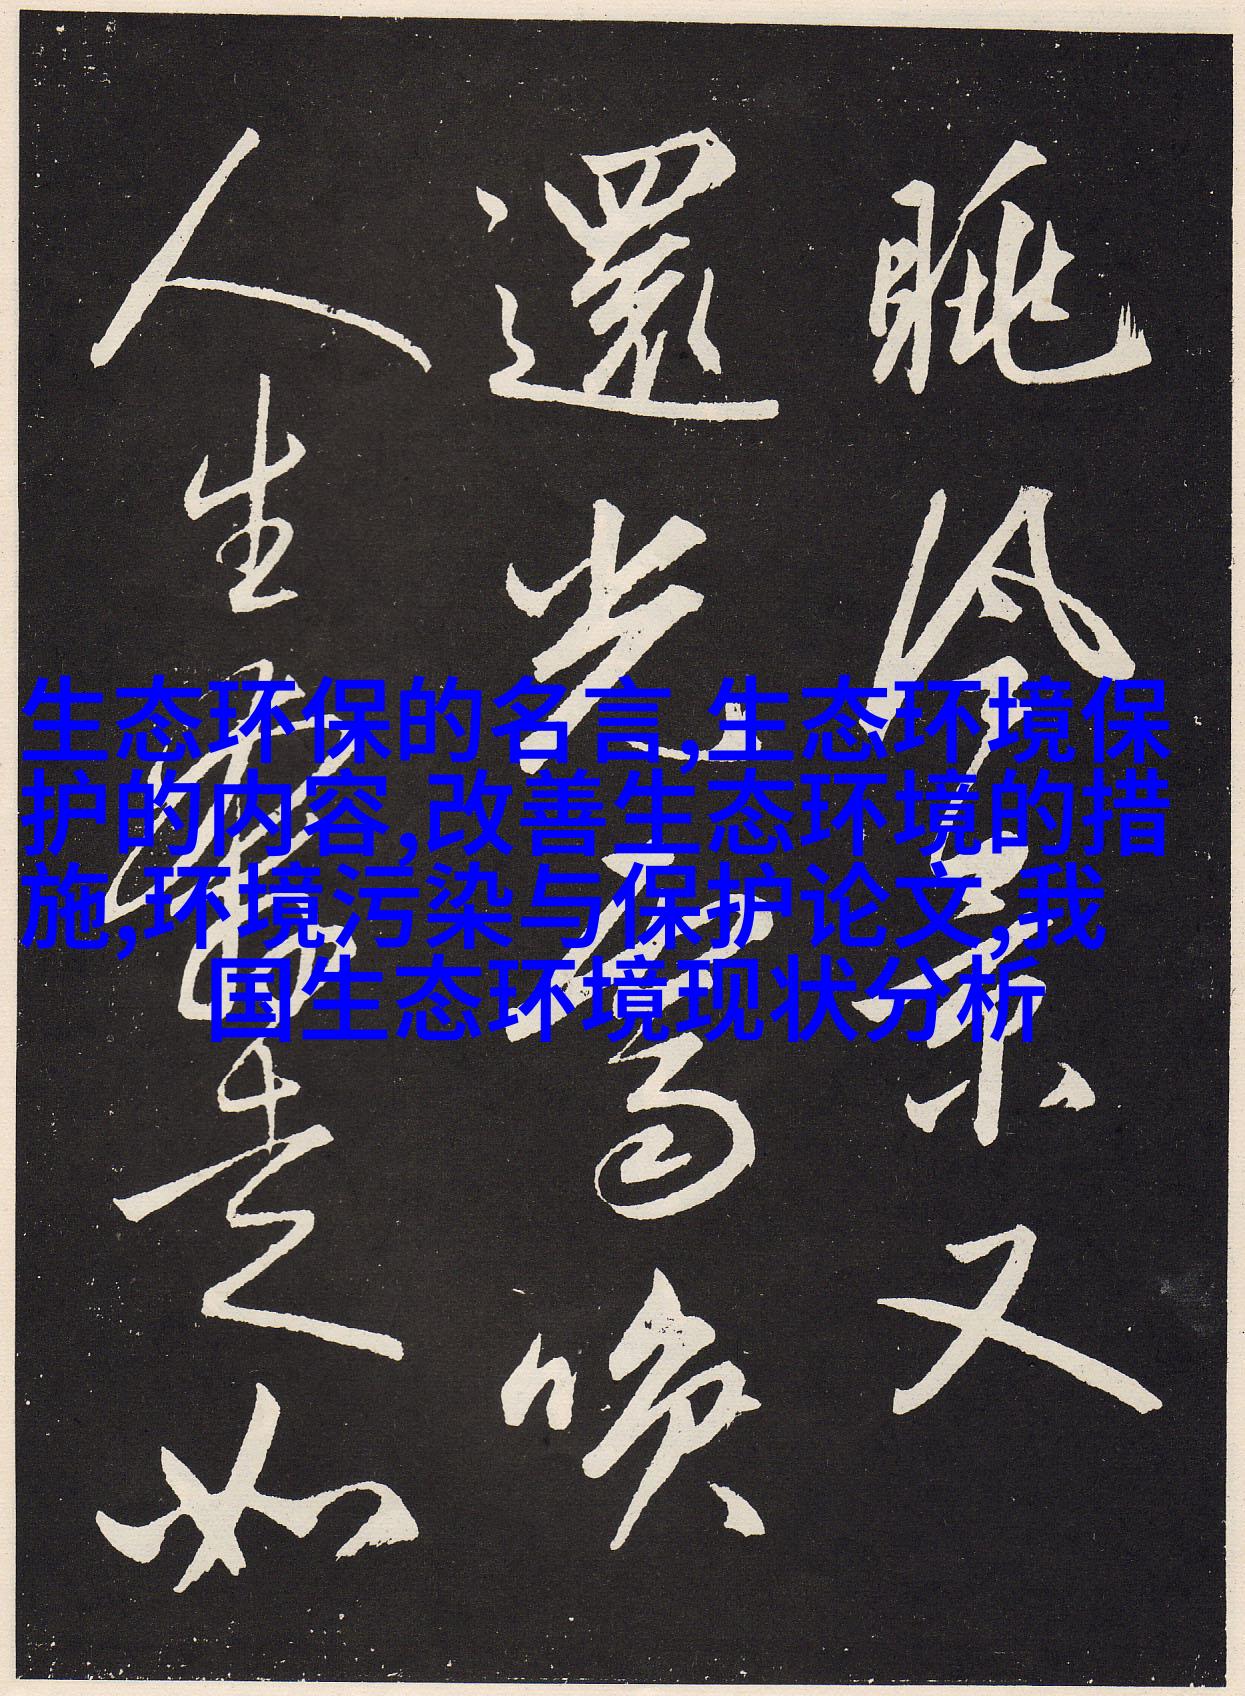 生态环保的名言,生态环境保
护的内容,改善生态环境的措
施,环境污染与保护论文,我
国生态环境现状分析
眺又
還光喚
人生如